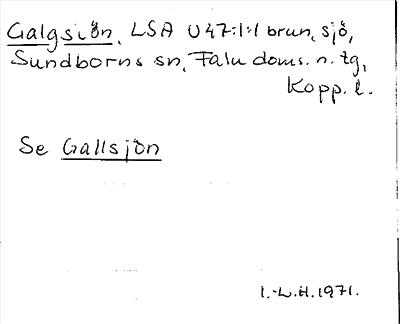 Galgsiön, LSA U 47:1:1 brun, sjö,
Sundborns sn, Falu doms. n. tg,
Kopp. l.
Se Gallsjön
I.-L.H. 1971.